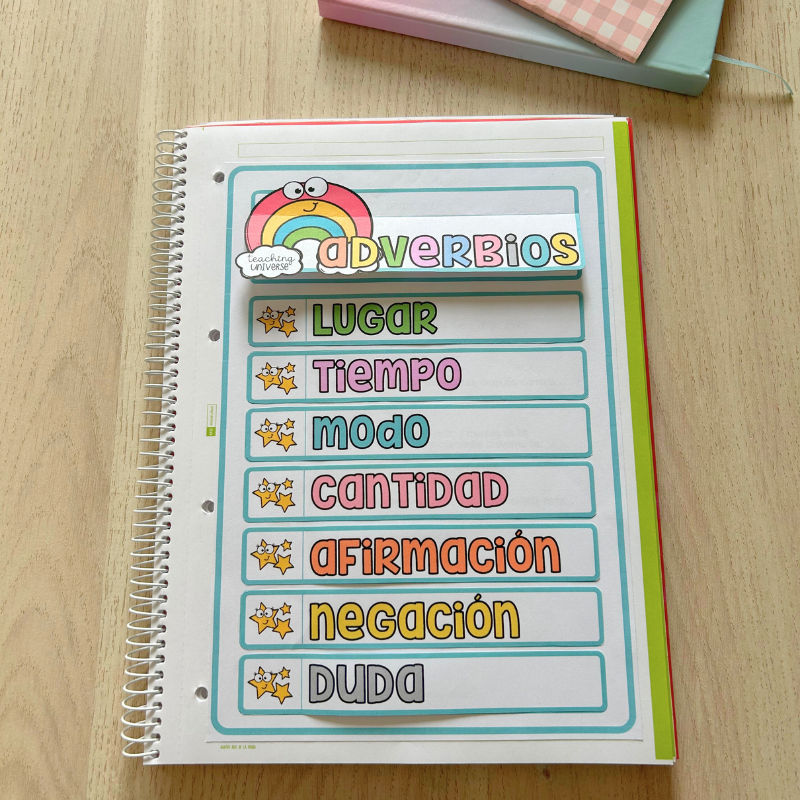 teaching
UNIVERSE
aDVeRBiOS
LUGaR
Tiempo
modo
CanTiDaD
aFiRmaCión
neGaCión
DUDa